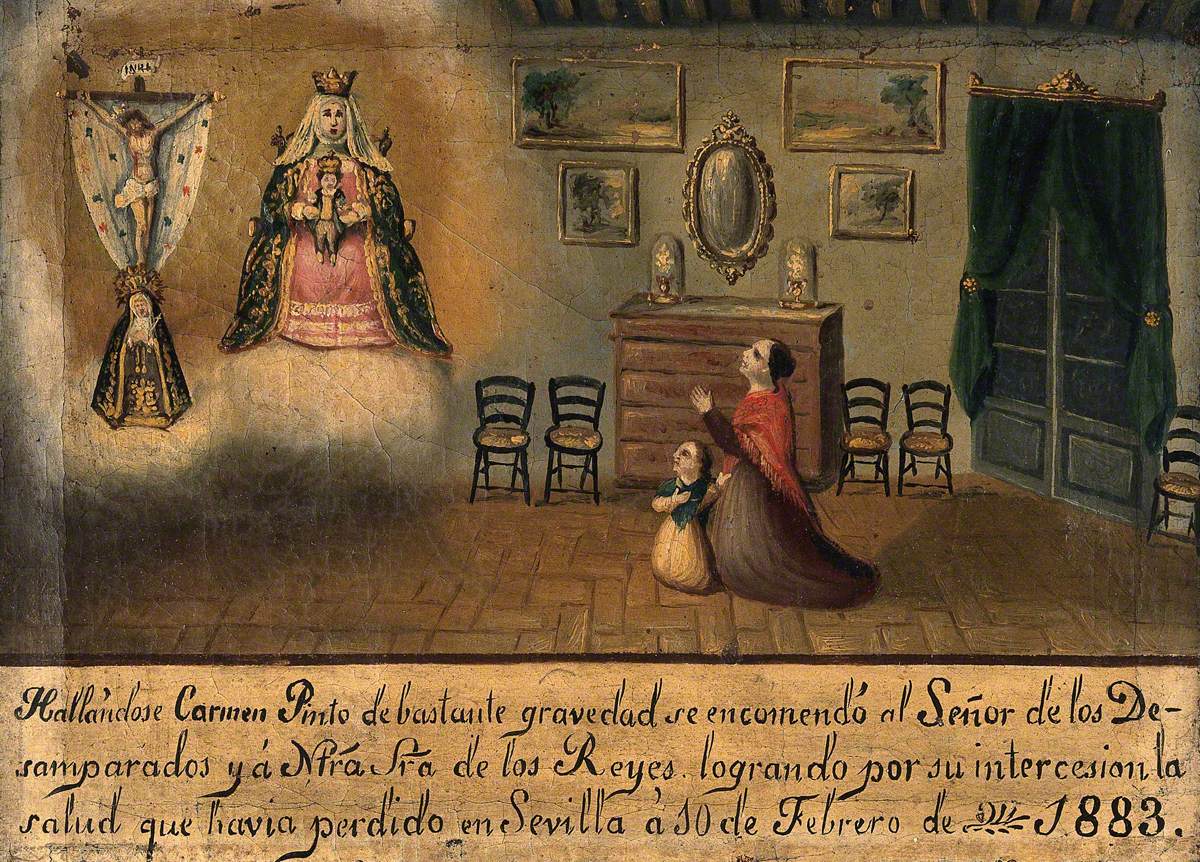 INRI
Hallándose Carmen Pinto de bastante gravedad se encomendó al Señor de los De-
samparados y á Ntrã Srã de los Reyes. logrando por su intercesion la
salud que havia perdido en Sevilla á 10 de Febrero de 1883.